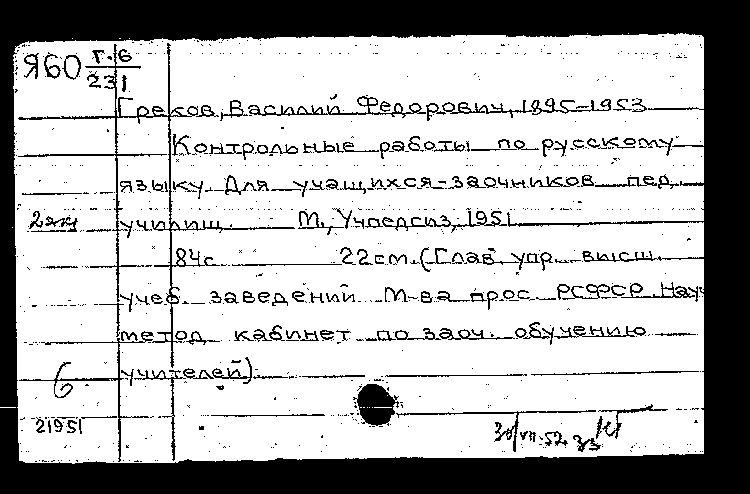 Я60 Г.6
231
Греков, Василий Федорович, 1895-1953
Контрольные работы по русскому
языку. Для учащихся-заочников пед.
2экз училищ. М., Учпедгиз, 1951
84с 22см. (Глав. упр. высш.
учеб. заведений М-ва прос. РСФСР. Науч
метод кабинет по заоч. обучению
6 учителей).
21951
30/VII-52